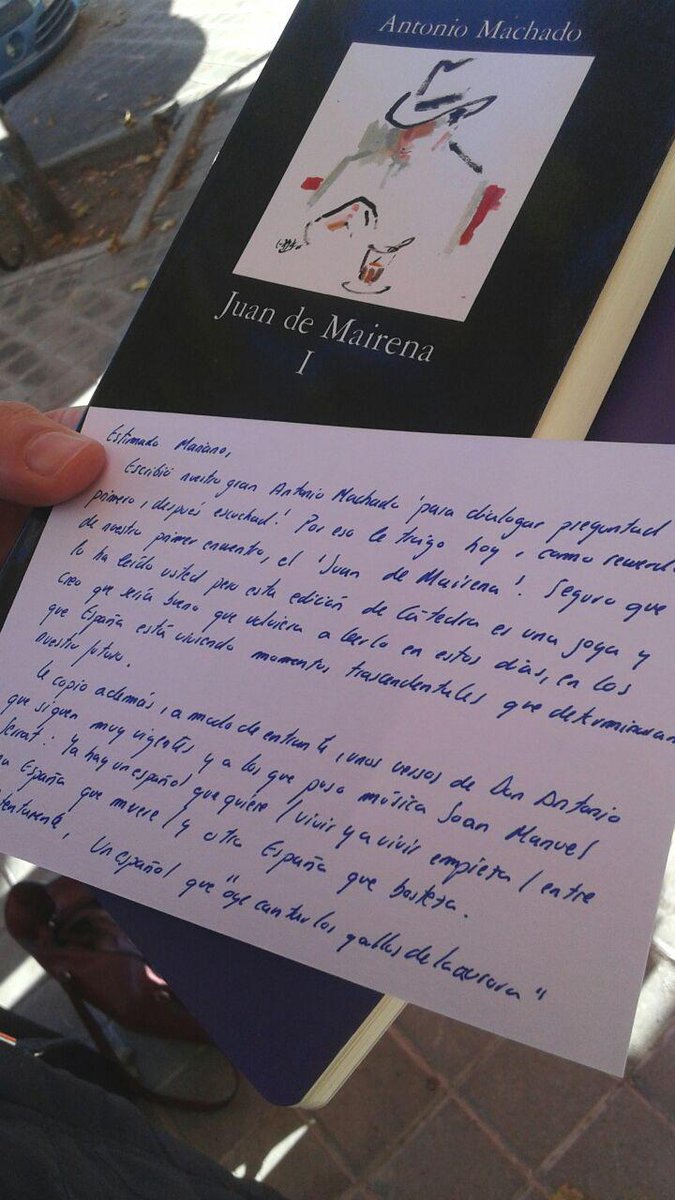 Antonio Machado
Juan de Mairena
I
Estimado Mariano,
Escribió nuestro gran Antonio Machado 'para dialogar preguntad
primero, después escuchad'. Por eso le traigo hoy, como recuerdo
de nuestro primer encuentro, el 'Juan de Mairena'. Seguro que
lo ha leído usted pero esta edición de Cátedra es una joya y
Creo que sería bueno que volviera a leerlo en estos días, en los
que España está viviendo momentos trascendentales que determinarán
nuestro futuro.
Le copio además, a modo de entrante, unos versos de Don Antonio
que siguen muy vigentes y a los que puso música Joan Manuel
Serrat: Ya hay un español que quiere / vivir y a vivir empieza / entre
una España que muere / y otra España que bosteza.
Un español que "oye cantar los gallos de la aurora"